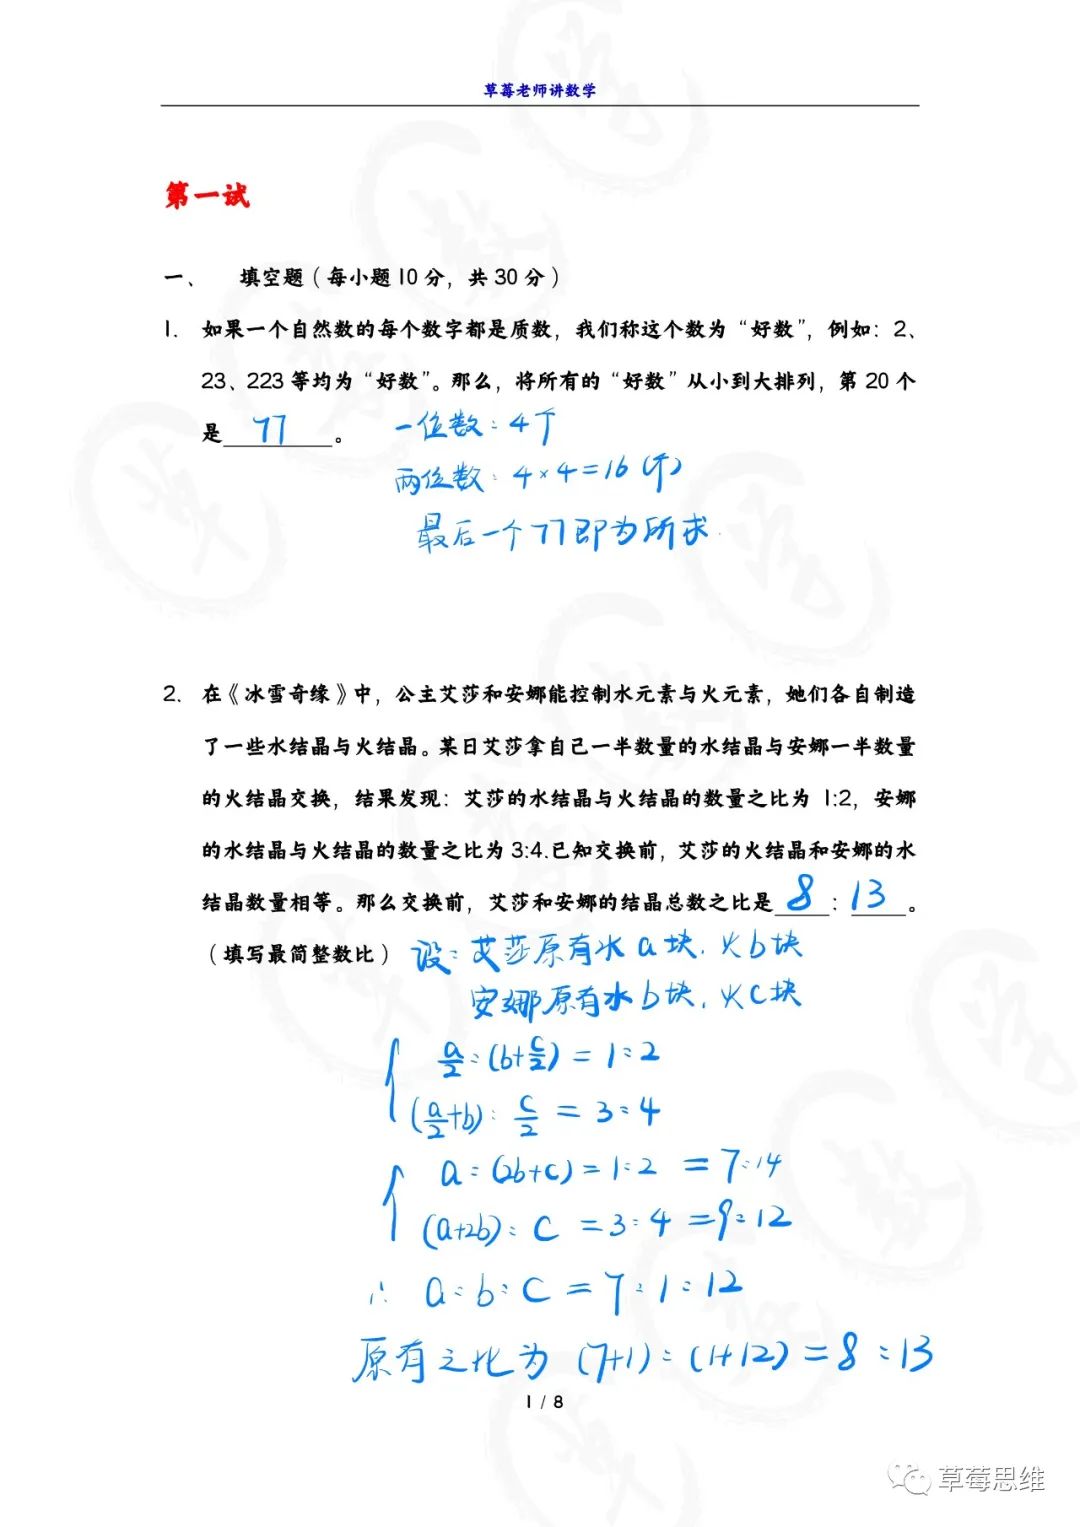 草莓老师讲数学
第一试
一、 填空题（每小题10分，共30分）
1. 如果一个自然数的每个数字都是质数，我们称这个数为“好数”，例如：2、
23、223等均为“好数”。那么，将所有的“好数”从小到大排列，第20个
是 77 。 一位数：4个
两位数：4×4=16（个）
最后一个77即为所求.
2. 在《冰雪奇缘》中，公主艾莎和安娜能控制水元素与火元素，她们各自制造
了一些水结晶与火结晶。某日艾莎拿自己一半数量的水结晶与安娜一半数量
的火结晶交换，结果发现：艾莎的水结晶与火结晶的数量之比为 1:2，安娜
的水结晶与火结晶的数量之比为3:4.已知交换前，艾莎的火结晶和安娜的水
结晶数量相等。那么交换前，艾莎和安娜的结晶总数之比是 8 : 13 。
（填写最简整数比） 设：艾莎原有水a块，火b块
安娜原有水b块，火c块
a/2：(b+c/2) = 1：2
(a/2+b)：c/2 = 3：4
a：(2b+c) = 1：2 = 7：14
(a+2b)：c = 3：4 = 9：12
∴ a：b：c = 7：1：12
原有之比为 (7+1)：(1+12) = 8：13
1 / 8
草莓思维